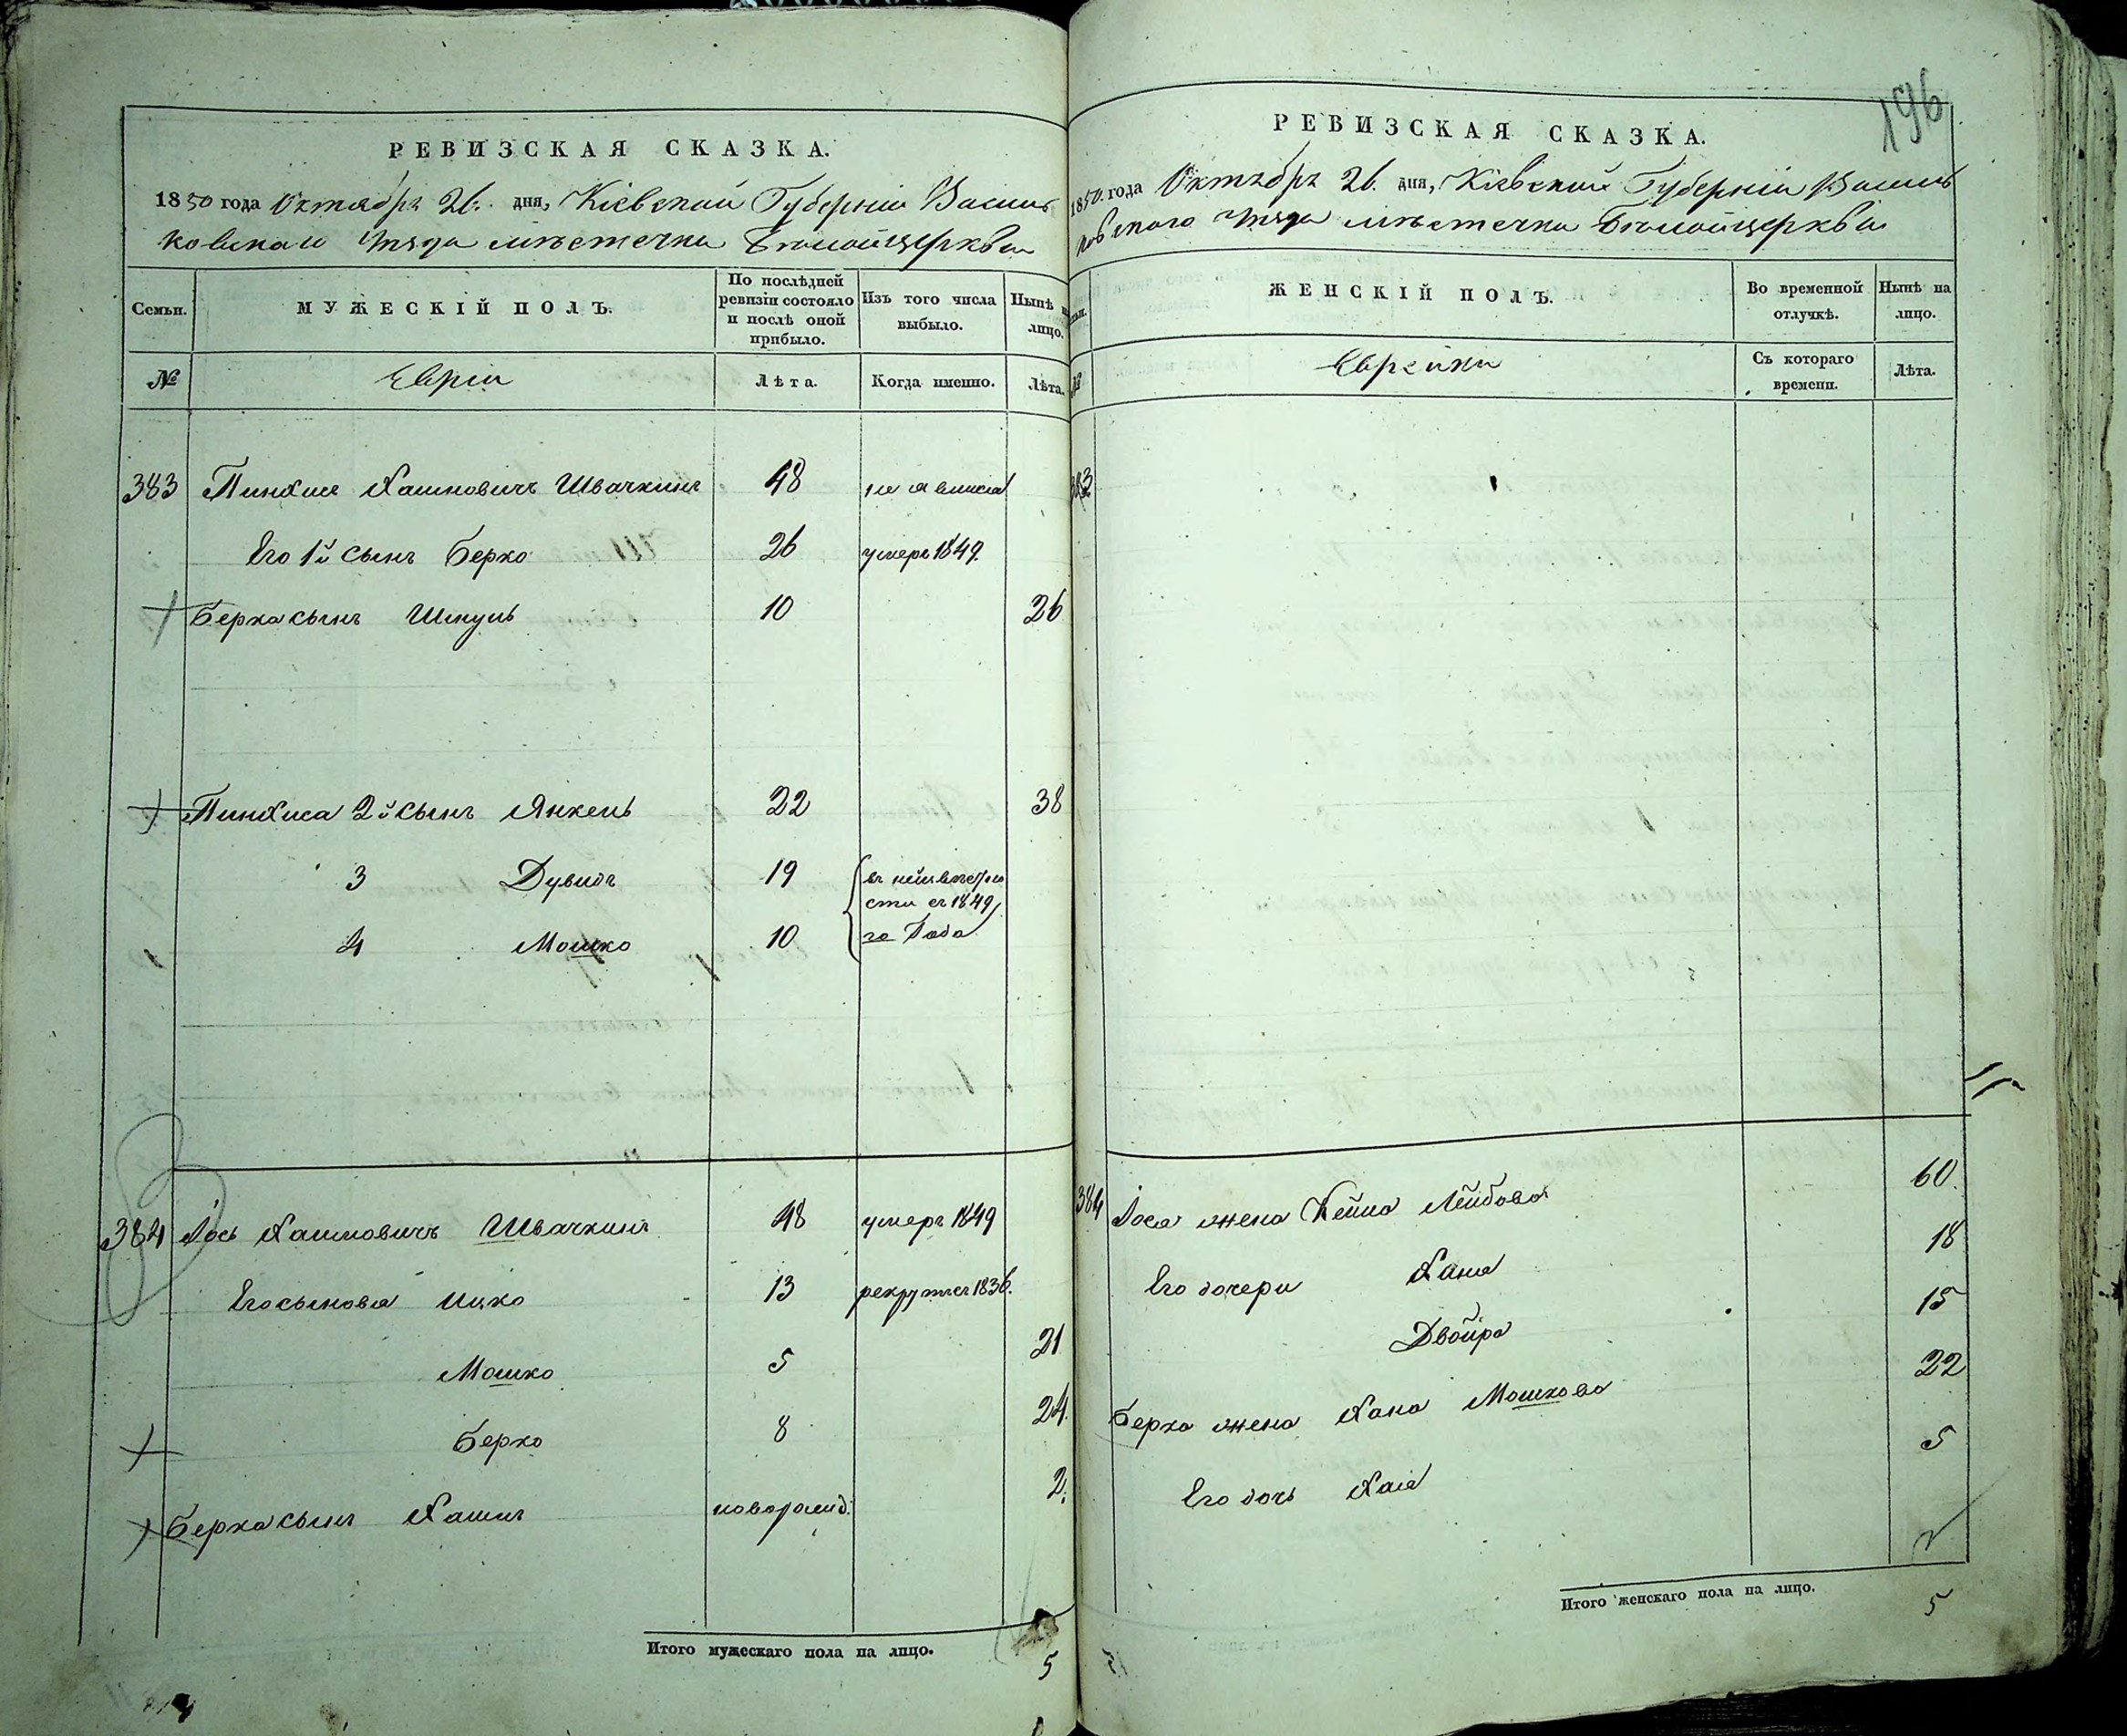 РЕВИЗСКАЯ СКАЗКА.
1850 года Октября 26. дня, Кіевской Губерніи Василь
ковскаго уѣзда мѣстечка Бѣлойцеркви
Семьи.
МУЖЕСКІЙ ПОЛЪ.
По послѣдней ревизіи состояло и послѣ оной прибыло.
Изъ того числа выбыло.
Нынѣ на лицо.
№
Евреи
Лѣта.
Когда именно.
Лѣта.
383 Пинхисъ Хаимовичъ Швачкинъ 48 не явился
Его 1й сынъ Берко 26 умеръ 1849.
Берка сынъ Шмуль 10 26
Пинхиса 2й сынъ Янкель 22 38
3 Дувидъ 19 въ неизвѣстно
сти съ 1849
4 Мошко 10 го года
384 Іось Хаимовичъ Швачкинъ 48 умеръ 1849
Его сыновья Ицко 13 рекрутъ съ 1836.
Мошко 5 21
Берко 8 24.
Берка сынъ Хаимъ новорожд. 2.
Итого мужескаго пола на лицо. 5
196
РЕВИЗСКАЯ СКАЗКА.
1850. года Октября 26. дня, Кіевской Губерніи Василь
ковскаго уѣзда мѣстечка Бѣлойцеркви
ЖЕНСКІЙ ПОЛЪ.
Во временной отлучкѣ.
Нынѣ на лицо.
№
Еврейки
Съ котораго времени.
Лѣта.
383
384 Іося жена Кейла Лейбова 60.
Его дочери Хана 18
Двойра 15
Берка жена Хана Мошкова 22
Его дочь Хая 5
Итого женскаго пола на лицо. 5